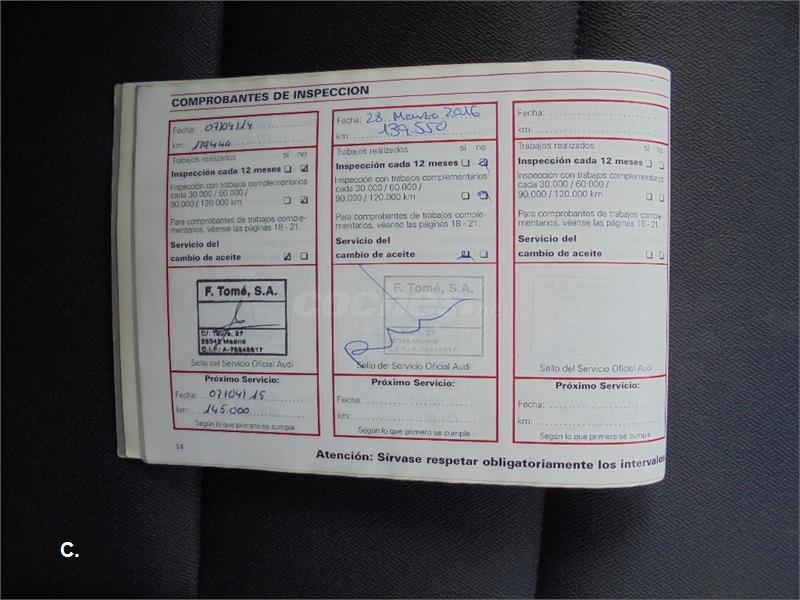 COMPROBANTES DE INSPECCION
Fecha: 07/04/14
km:
Trabajos realizados sí no
Inspección cada 12 meses
Inspección con trabajos complementarios
cada 30.000 / 60.000 /
90.000 / 120.000 km
Para comprobantes de trabajos comple-
mentarios, véanse las páginas 18 - 21.
Servicio del
cambio de aceite
F. Tomé, S.A.
28042 Madrid
Sello del Servicio Oficial Audi
Próximo Servicio:
Fecha: 07/04/15
km: 145.000
Según lo que primero se cumpla
14
Fecha: 28 Marzo 2016
km: 139.550
Trabajos realizados sí no
Inspección cada 12 meses
Inspección con trabajos complementarios
cada 30.000 / 60.000 /
90.000 / 120.000 km
Para comprobantes de trabajos comple-
mentarios, véanse las páginas 18 - 21.
Servicio del
cambio de aceite
F. Tomé, S.A.
28042 Madrid
Sello del Servicio Oficial Audi
Próximo Servicio:
Fecha:
km:
Según lo que primero se cumpla
Fecha:
km:
Trabajos realizados sí no
Inspección cada 12 meses
Inspección con trabajos complementarios
cada 30.000 / 60.000 /
90.000 / 120.000 km
Para comprobantes de trabajos comple-
mentarios, véanse las páginas 18 - 21.
Servicio del
cambio de aceite
Sello del Servicio Oficial Audi
Próximo Servicio:
Fecha:
km:
Según lo que primero se cumpla
Atención: Sírvase respetar obligatoriamente los intervalos
coches.net
C.